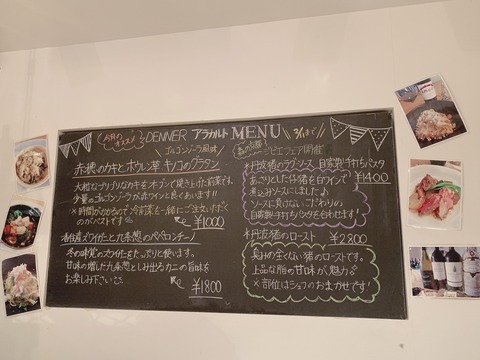 今月のオススメ
DENNER アラカルト MENU
3/1まで!
ゴルゴンゾーラ風味
赤穂のカキとホウレン草 キノコのグラタン
大粒なプリプリなカキをオーブンで焼き上げた前菜です。
少量のゴルゴンゾーラが赤ワインと良くあいます!!
※時間がかかるので冷前菜と一緒にご注文いただくのがベストです
¥1000
香住産ズワイガニと九条葱のペペロンチーノ
冬の味覚のズワイガニをたっぷりと使います。
甘味の増した九条葱としみ出るカニの旨味を
お楽しみ下さい
¥1800
ジビエフェア開催
丹波猪のラグーソース 自家製手打ちパスタ
¥1400
あっさりとした猪を白ワインで
煮込みソースにしました♪
ソースに負けないこだわりの
自家製手打ちパスタを合わせます!
丹波猪のロースト ¥2800
臭みの全くない猪のローストです。
上品な脂の甘味が魅力
※部位はシェフのおまかせです!